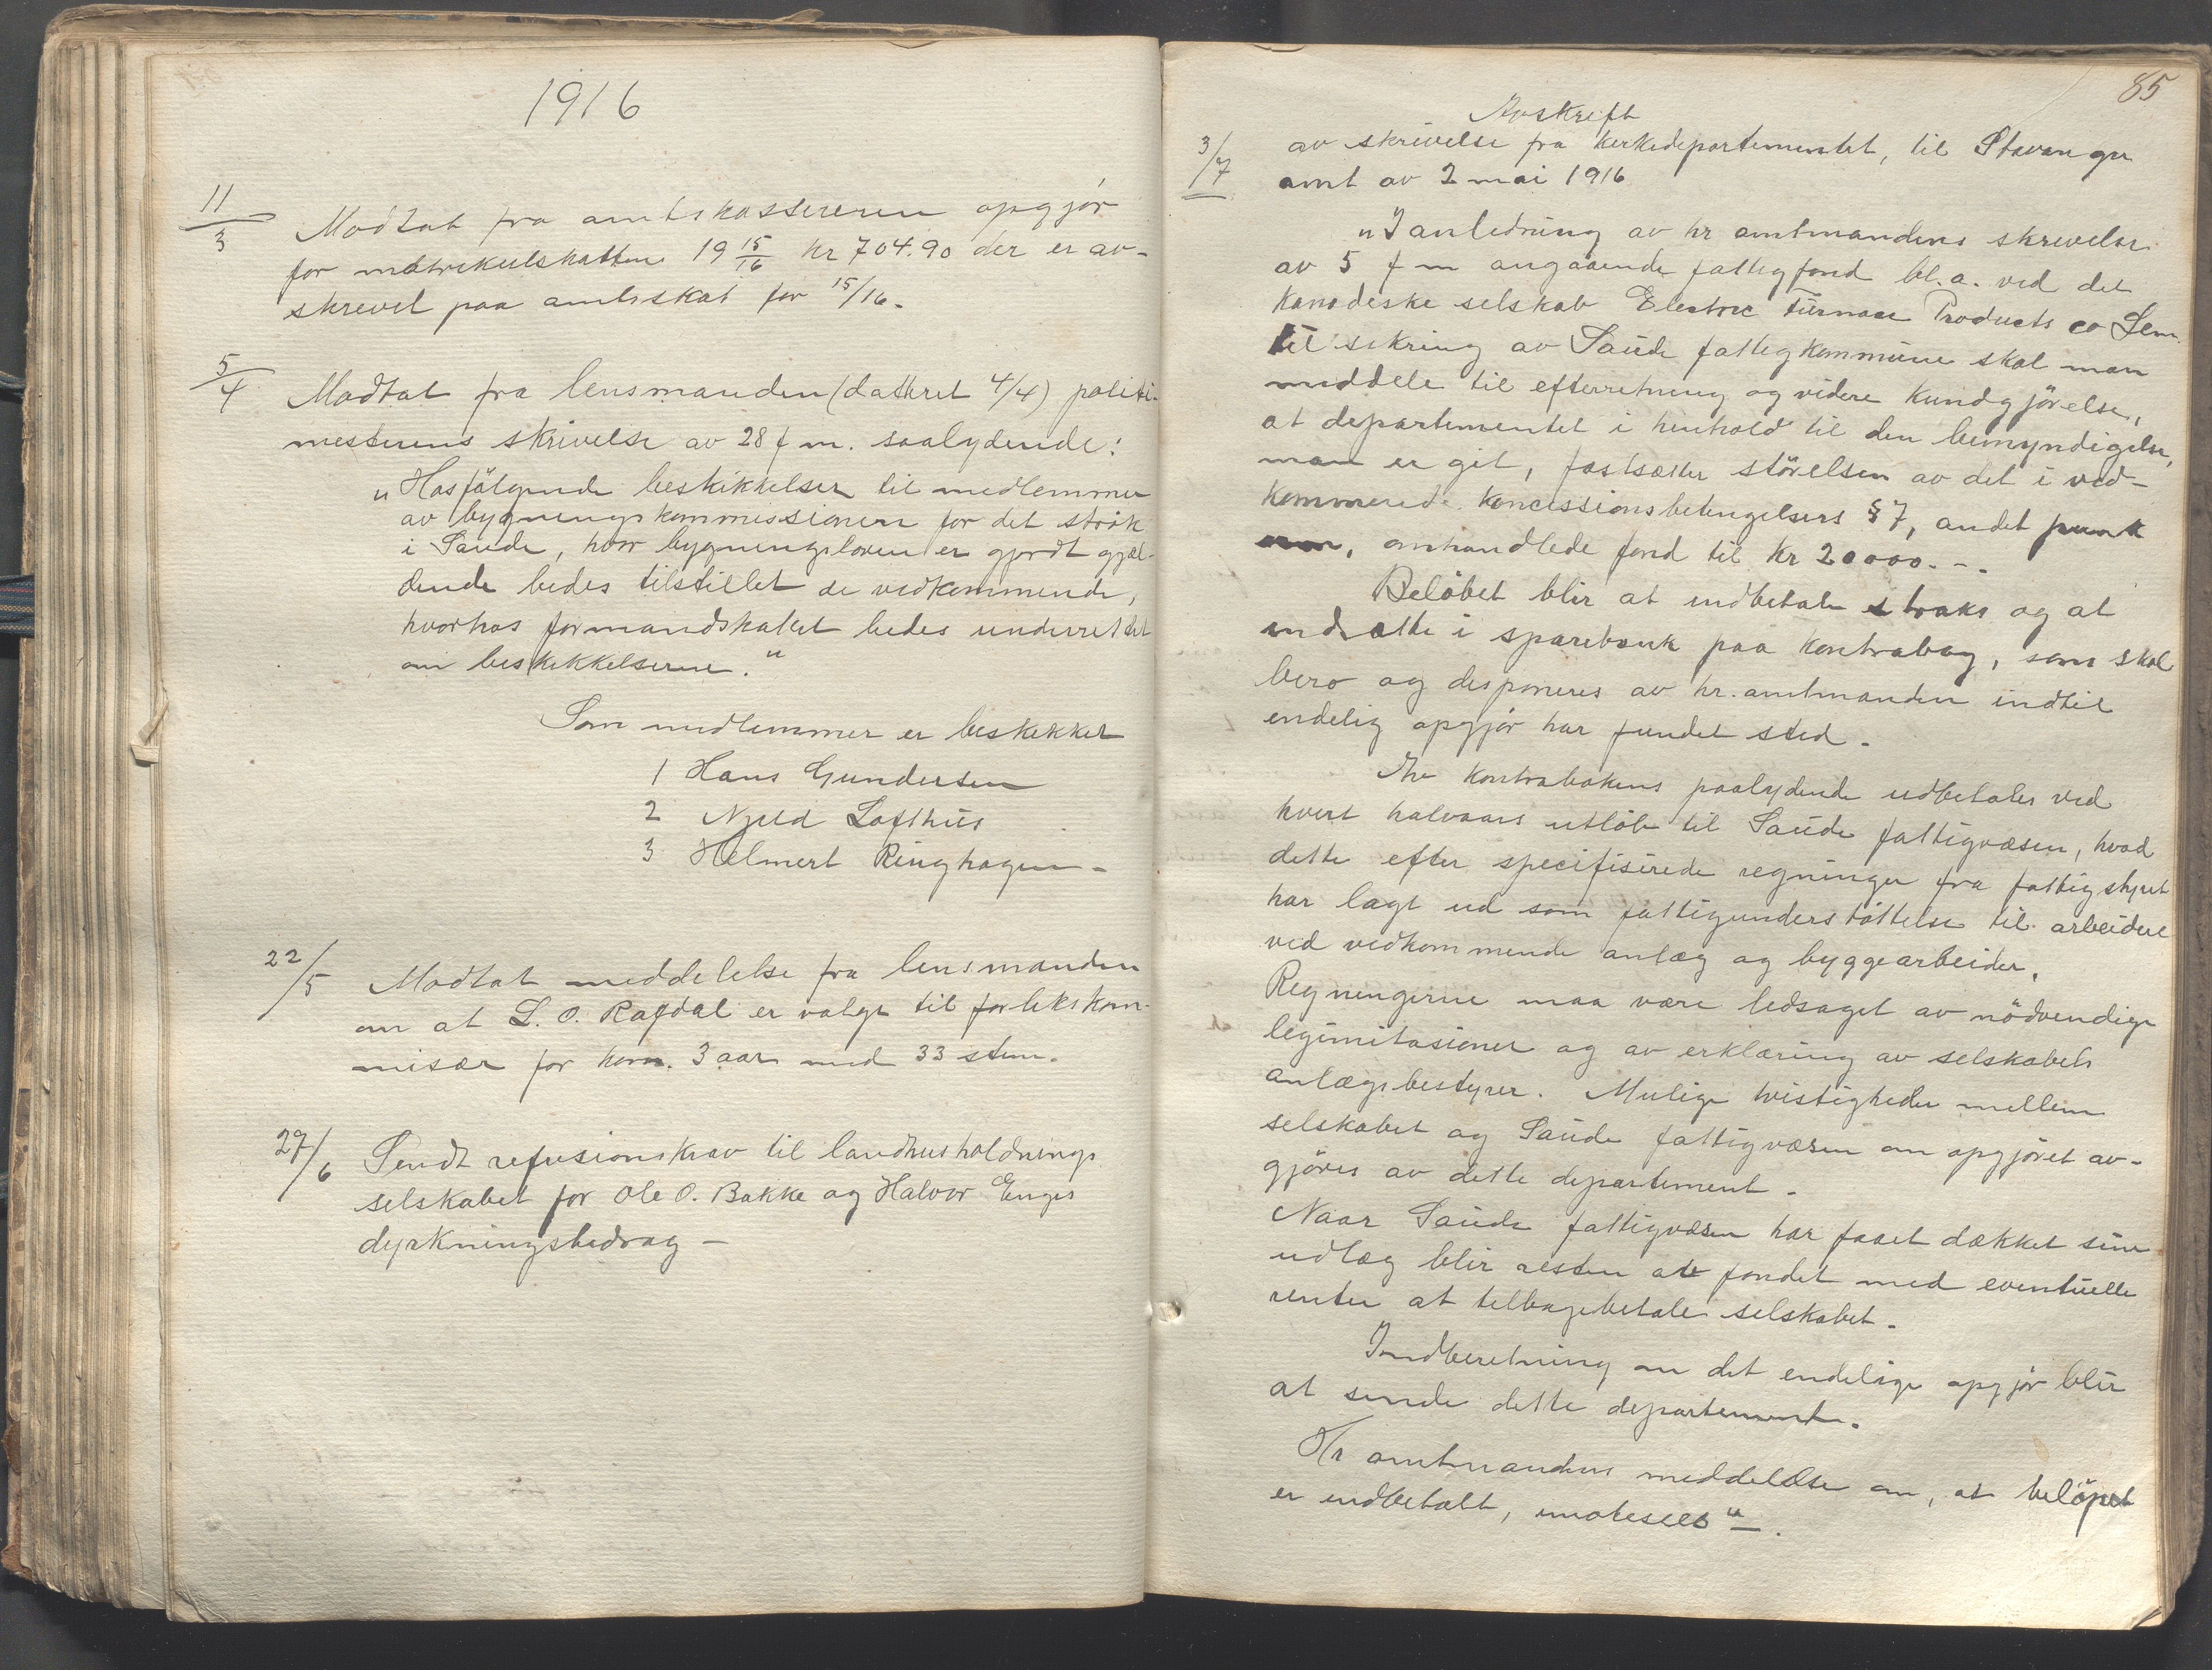 1916
11/3 Modtat fra amtskassereren opgjör
for matrikulskatten 19 15/16 kr 704.90 der er av-
skrevet paa amtsskat for 15/16.
5/4 Modtat fra lensmanden (dateret 4/4) politi-
mesterens skrivelse av 28 f m. saalydende:
"Hosfölgende beskikkelser til medlemmer
av bygningskommissionen for det strök
i Saude, hvor bygningsloven er gjordt gjæl-
dende bedes tilstillet de vedkommende,
hvorhos formandskabet bedes underrettet
om beskikkelserne."
Som medlemmer er beskikket
1 Hans Gundersen
2 Njeld Lofthus
3 Helmert Ringhagen -
22/5 Modtat meddelelse fra lensmanden
om at L. O. Ragdal er valgt til forlikskom-
misær for kom. 3 aar med 33 stem.
27/6 Sendt refusionskrav til landhusholdnings
selskabet for Ole O. Bakke og Halvor Enges
dyrkningsbidrag —
85
Avskrift
3/7 av skrivelse fra kirkedepartementet, til Stavanger
amt av 2 mai 1916
"I anledning av hr amtmandens skrivelse
av 5 f m angaaende fattigfond bl. a. ved det
kanadiske selskab Electric Furnace Products co Lem.
til sikring av Saude fattigkommune skal man
meddele til efterretning og videre kundgjörelse,
at departementet i henhold til den bemyndigelse,
man er git, fastsætter störelsen av det i ved-
kommende koncessionsbetingelsers § 7, andet punk
omhandlede fond til kr 20000.--
Belöbet blir at indbetale straks og at
indsætte i sparebank paa kontrabog, som skal
bero og disponeres av hr. amtmanden indtil
endelig opgjör har fundet sted.
Av kontrabokens paalydende udbetales ved
hvert halvaars utlöb til Saude fattigvæsen, hvad
dette efter specifiserede regninger fra fattigstyret
har lagt ud som fattigunderstöttelse til arbeidere
ved vedkommende anlæg og byggearbeider.
Regningerne maa være ledsaget av nödvendige
legimitasioner og av erklæring av selskabets
anlægsbestyrer. Mulige tvistigheder mellem
selskabet og Saude fattigvæsen om opgjöret av-
gjöres av dette departement.
Naar Saude fattigvæsen har faaet dækket sine
udlæg blir resten av fondet med eventuelle
renter at tilbagebetale selskabet.
Indberetning om det endelige opgjör blir
at sende dette departement.
Hr amtmandens meddelelse om, at belöpet
er indbetalt, imøtesees" —.